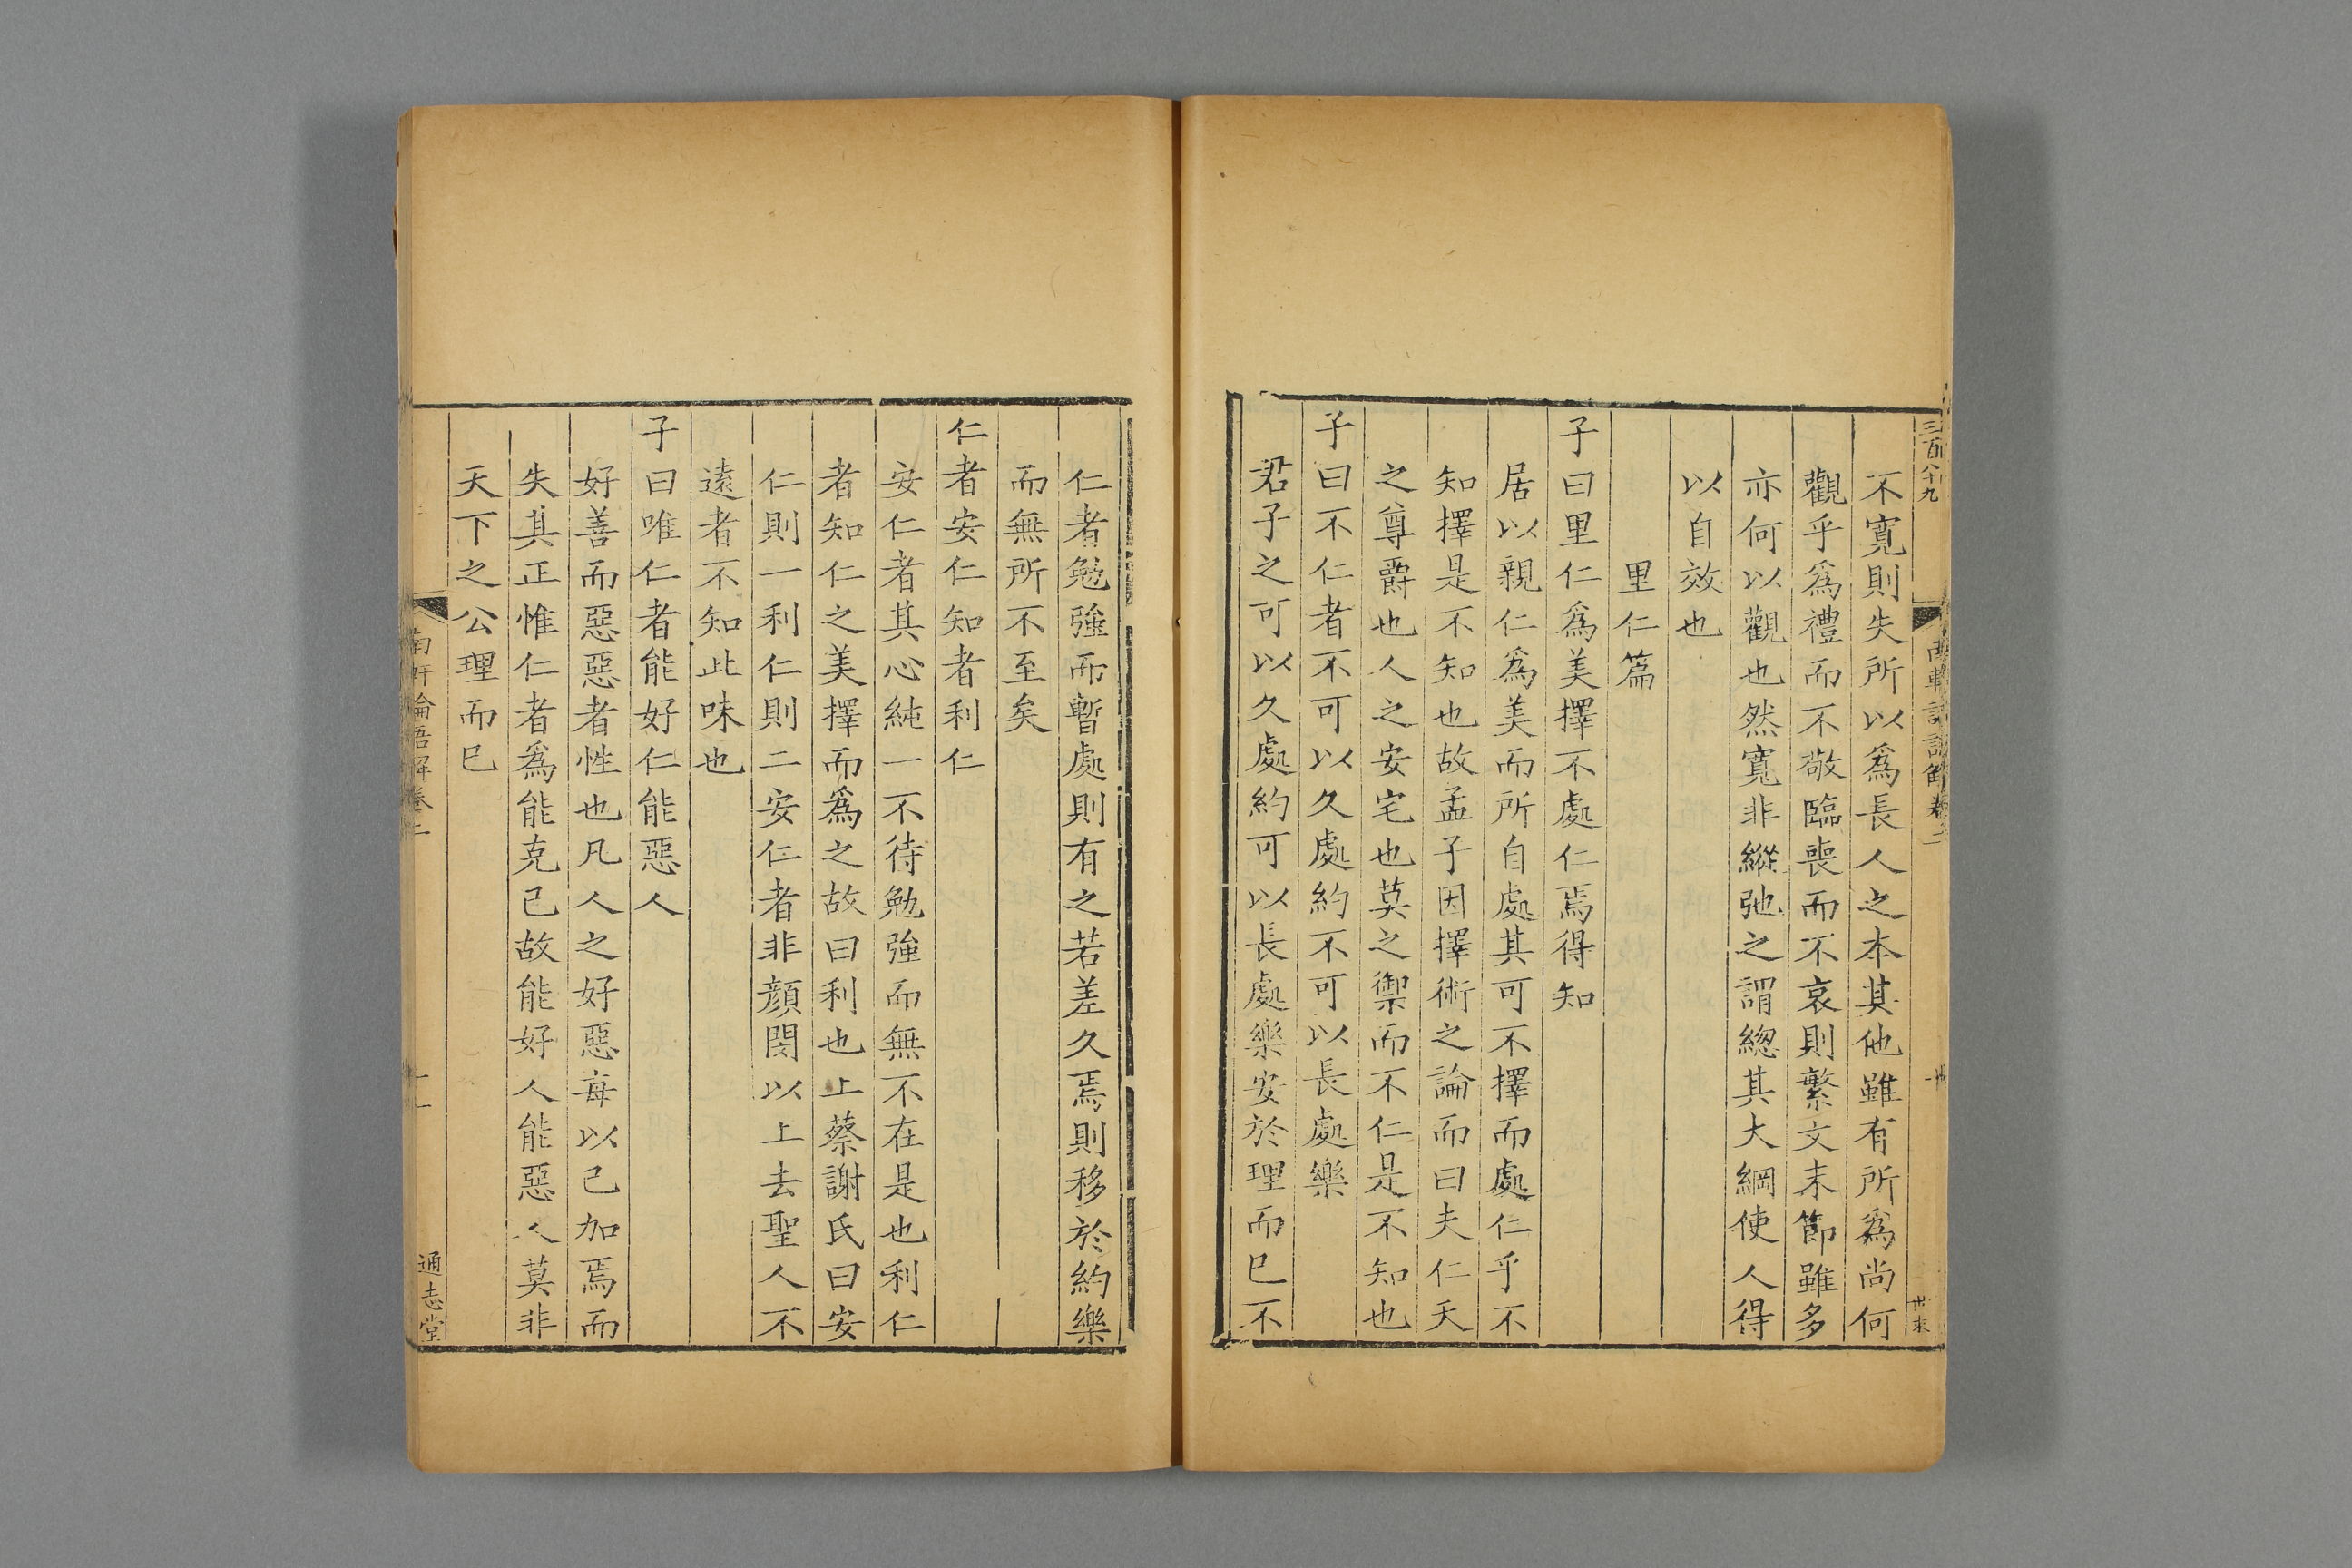 三百八十九
南軒論語解卷二
十
不寛則失所以爲長人之本其他雖有所爲尚何
觀乎爲禮而不敬臨喪而不哀則繁文末節雖多
亦何以觀也然寬非縱弛之謂緫其大綱使人得
以自效也
里仁篇
子曰里仁爲美擇不處仁焉得知
居以親仁爲美而所自處其可不擇而處仁乎不
知擇是不知也故孟子因擇術之論而曰夫仁天
之尊爵也人之安宅也莫之禦而不仁是不知也
子曰不仁者不可以久處約不可以長處樂
君子之可以久處約可以長處樂安於理而已不
仁者勉強而暫處則有之若差久焉則移於約樂
而無所不至矣
仁者安仁知者利仁
安仁者其心純一不待勉強而無不在是也利仁
者知仁之美擇而爲之故曰利也上蔡謝氏曰安
仁則一利仁則二安仁者非顔閔以上去聖人不
遠者不知此味也
子曰唯仁者能好仁能惡人
好善而惡惡者性也凡人之好惡每以己加焉而
失其正惟仁者爲能克己故能好人能惡人莫非
天下之公理而已
南軒論語解卷二
十一
通志堂